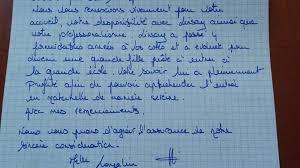 Nous vous remercions vivement pour votre
accueil, votre disponibilité avec ainsi que
votre professionnalisme. a passé 4
formidables années à vos côtés et a évolué pour
devenir une grande fille prête à entrer à
la grande école. Votre savoir lui a pleinement
profité afin de pouvoir appréhender l'entrée
en maternelle de manière sereine.
Avec mes remerciements.
Nous vous prions d'agréer l'assurance de notre
sincère considération.